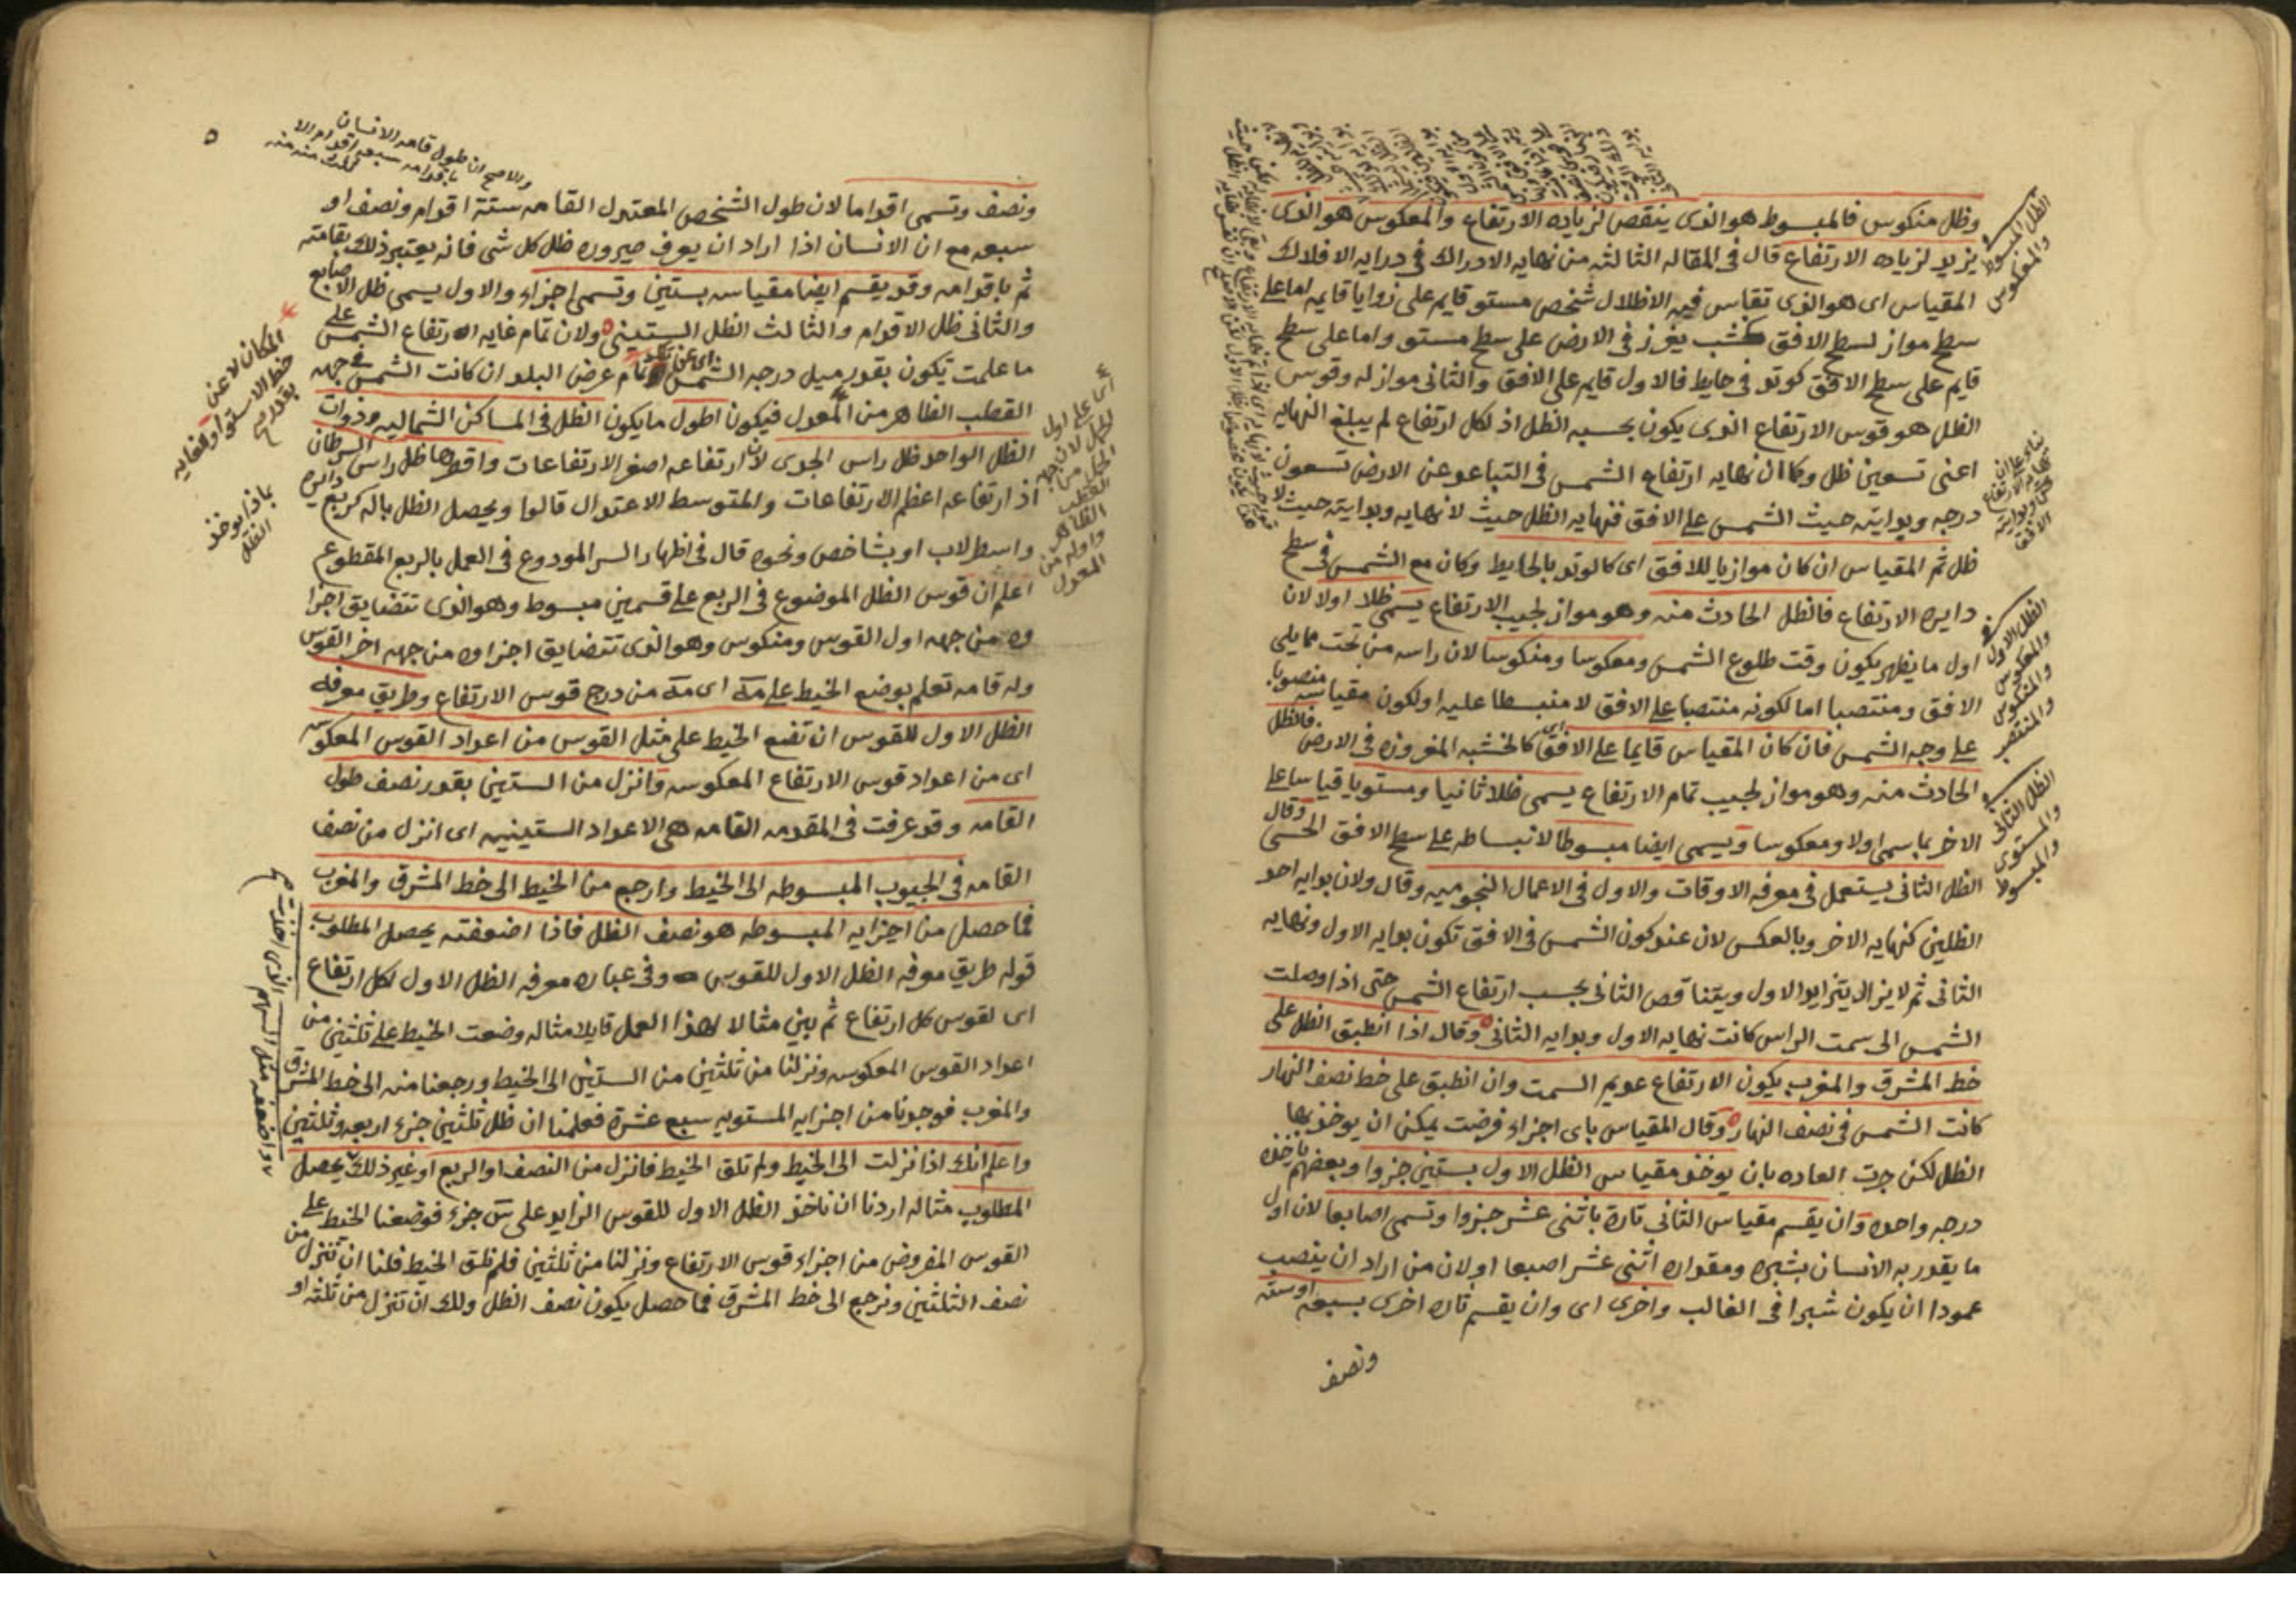 وظل منكوس فالمبسوط هو الذى ينقص لزياده الارتفاع والمعكوس هو الذى
يزيد لزياده الارتفاع قال فى المقاله الثالثه من نهايه الادراك فى درايه الافلاك
المقياس اى هو الذى تقاس فيه الاظلال شخص مستو قايم على زوايا قايمه اما على
سطح مواز لسطح الافق كخشب يغرز فى الارض على سطح مستو واما على سطح
قايم على سطح الافق كوتد فى حايط فالاول قايم على الافق والثانى مواز له وقوس
الظل هو قوس الارتفاع الذى يكون بحسبه الظل اذ لكل ارتفاع لم يبلغ النهايه
اعنى تسعين ظل وكما ان نهايه ارتفاع الشمس فى التباعد عن الارض تسعون
درجه وبدايته حيث الشمس على الافق فنهايه الظل حيث لا نهايه وبدايته حيث لا
ظل ثم المقياس ان كان موازيا للافق اى كالوتد بالحايط وكان مع الشمس فى سطح
دايره الارتفاع فالظل الحادث منه وهو مواز لجيب الارتفاع يسمى ظلا اولا لان
اول ما يظهر يكون وقت طلوع الشمس ومعكوسا ومنكوسا لان راسه من تحت مما يلى
الافق ومنتصبا اما لكونه منتصبا على الافق لا منبسطا عليه او لكون مقياسه منصوبا
على وجه الشمس فان كان المقياس قايما على الافق اى كالخشبه المغروزه فى الارض فالظل
الحادث منه وهو مواز لجيب تمام الارتفاع يسمى ظلا ثانيا ومستويا قياسا على
الاخر بما سمى اولا ومعكوسا ويسمى ايضا مبسوطا لانبساطه على سطح الافق الحسى وقال
الظل الثانى يستعمل فى معرفه الاوقات والاول فى الاعمال النجوميه وقال ولان بدايه احد
الظلين كنهايه الاخر وبالعكس لان عند كون الشمس فى الافق تكون بدايه الاول ونهايه
الثانى ثم لا يزال يتزايد الاول ويتناقص الثانى بحسب ارتفاع الشمس حتى اذا وصلت
الشمس الى سمت الراس كانت نهايه الاول وبدايه الثانى وقال اذا انطبق الظل على
خط المشرق والمغرب يكون الارتفاع عديم السمت وان انطبق على خط نصف النهار
كانت الشمس فى نصف النهار وقال المقياس باى اجزاء فرضت يمكن ان يوخذ بها
الظل لكن جرت العاده بان يوخذ مقياس الظل الاول بستين جزوا وبعضهم ياخذه
درجه واحده وان يقسم مقياس الثانى تارة باثنى عشر جزوا وتسمى اصابعا لان اول
ما يقدر به الانسان بشبره ومقداره اثنى عشر اصبعا او لان من اراد ان ينصب
عمودا ان يكون شبرا فى الغالب واخرى اى وان يقسم تاره اخرى بسبعه او سته
ونصف
الظل المبسوط
والمعكوس
الظل الاول
والمعكوس
والمنكوس
والمنتصب
الظل الثانى
والمستوى
والمبسوط
ونصف وتسمى اقداما لان طول الشخص المعتدل القامه ستة اقدام ونصف او
سبعه مع ان الانسان اذا اراد ان يعرف صيروره ظل كل شى فانه يعتبر ذلك بقامته
ثم باقدامه وقد يقسم ايضا مقياسه بستين وتسمى اجزاء والاول يسمى ظل الاصابع
والثانى ظل الاقدام والثالث الظل الستينى ولان تمام غايه ارتفاع الشمس على
ما علمت تكون بقدر ميل درجه الشمس تمام عرض البلد ان كانت الشمس فى جهه
القطب الظاهر من المعدل فيكون اطول ما يكون الظل فى المساكن الشماليه وذوات
الظل الواحد ظل راس الجدى لان ارتفاعه اصغر الارتفاعات واقصرها ظل راس السرطان
اذ ارتفاعه اعظم الارتفاعات والمتوسط الاعتدال قالوا ويحصل الظل باله كربع دايره
واسطرلاب او بشاخص ونحوه قال فى اظهار السر المودوع فى العمل بالربع المقطوع
اعلم ان قوس الظل الموضوع فى الربع على قسمين مبسوط وهو الذى تتضايق اجزا
وه من جهه اول القوس ومنكوس وهو الذى تتضايق اجزاوه من جهه اخر القوس
وله قامه تعلم بوضع الخيط على مه اى مه من درج قوس الارتفاع وطريق معرفه
الظل الاول للقوس ان تضع الخيط على مثل القوس من اعداد القوس المعكوسه
اى من اعداد قوس الارتفاع المعكوسه وانزل من الستين بقدر نصف طول
القامه وقد عرفت فى المقدمه القامه هى الاعداد الستينيه اى انزل من نصف
القامه فى الجيوب المبسوطه الى الخيط وارجع من الخيط الى خط المشرق والمغرب
فما حصل من اجزايه المبسوطه هو نصف الظل فاذا اضعفته يحصل المطلوب
قوله طريق معرفه الظل الاول للقوس وفى عباره معرفه الظل الاول لكل ارتفاع
اى لقوس كل ارتفاع ثم بين مثالا لهذا العمل قايلا مثاله وضعت الخيط على ثلثين من
اعداد القوس المعكوسه ونزلنا من ثلثين من الستين الى الخيط ورجعنا منه الى خط المشرق
والمغرب فوجدنا من اجزايه المستويه سبع عشرة فعلمنا ان ظل ثلثين جزء اربعه وثلثين
واعلم انك اذا نزلت الى الخيط ولم تلق الخيط فانزل من النصف او الربع او غير ذلك يحصل
المطلوب مثاله اردنا ان ناخذ الظل الاول للقوس الزايد على جزء فوضعنا الخيط على
القوس المفروض من اجزاء قوس الارتفاع ونزلنا من ثلثين فلم نلق الخيط فلنا ان ننزل من
نصف الثلثين ونرجع الى خط المشرق فما حصل يكون نصف الظل ولك ان تنزل من ثلثه او
والاصح ان طول قامه الانسان
باقدامه سبعه اقدام
٥
المكان لا عن
خط الاستوا
بماذا يوخذ
الظل
اى على اول
الحمل لان جهه
القطب
الظاهر
واوله من
المعدل